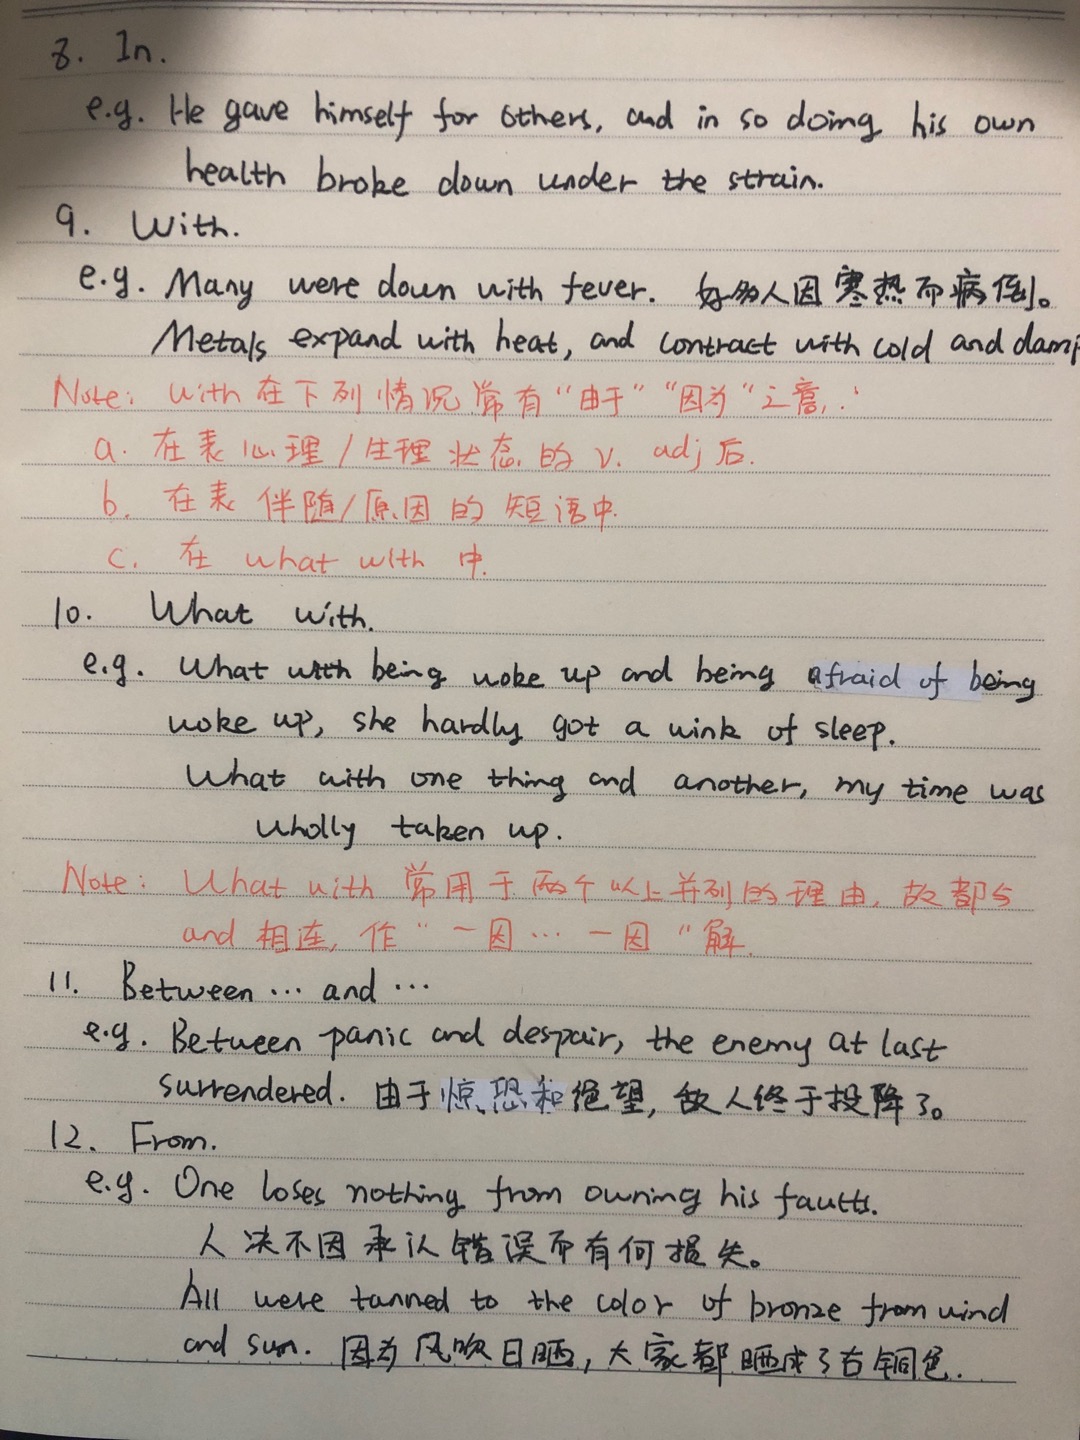 8. In.
e.g. He gave himself for others, and in so doing his own
health broke down under the strain.
9. With.
e.g. Many were down with fever. 好多人因寒热而病倒。
Metals expand with heat, and contract with cold and damp
Note: with在下列情况常有“由于”“因为”之意:
a. 在表心理/生理状态的v. adj后.
b. 在表伴随/原因的短语中.
c. 在 what with 中.
10. What with.
e.g. What with being woke up and being afraid of being
woke up, she hardly got a wink of sleep.
What with one thing and another, my time was
wholly taken up.
Note: What with 常用于两个以上并列的理由, 故都与
and 相连, 作“一因…一因”解.
11. Between … and …
e.g. Between panic and despair, the enemy at last
surrendered. 由于惊恐和绝望, 敌人终于投降了。
12. From.
e.g. One loses nothing from owning his faults.
人决不因承认错误而有何损失。
All were tanned to the color of bronze from wind
and sun. 因为风吹日晒, 大家都晒成了古铜色.